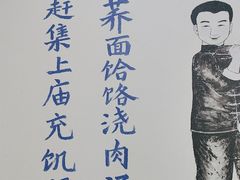 荞面饸饹浇肉
赶集上庙充饥